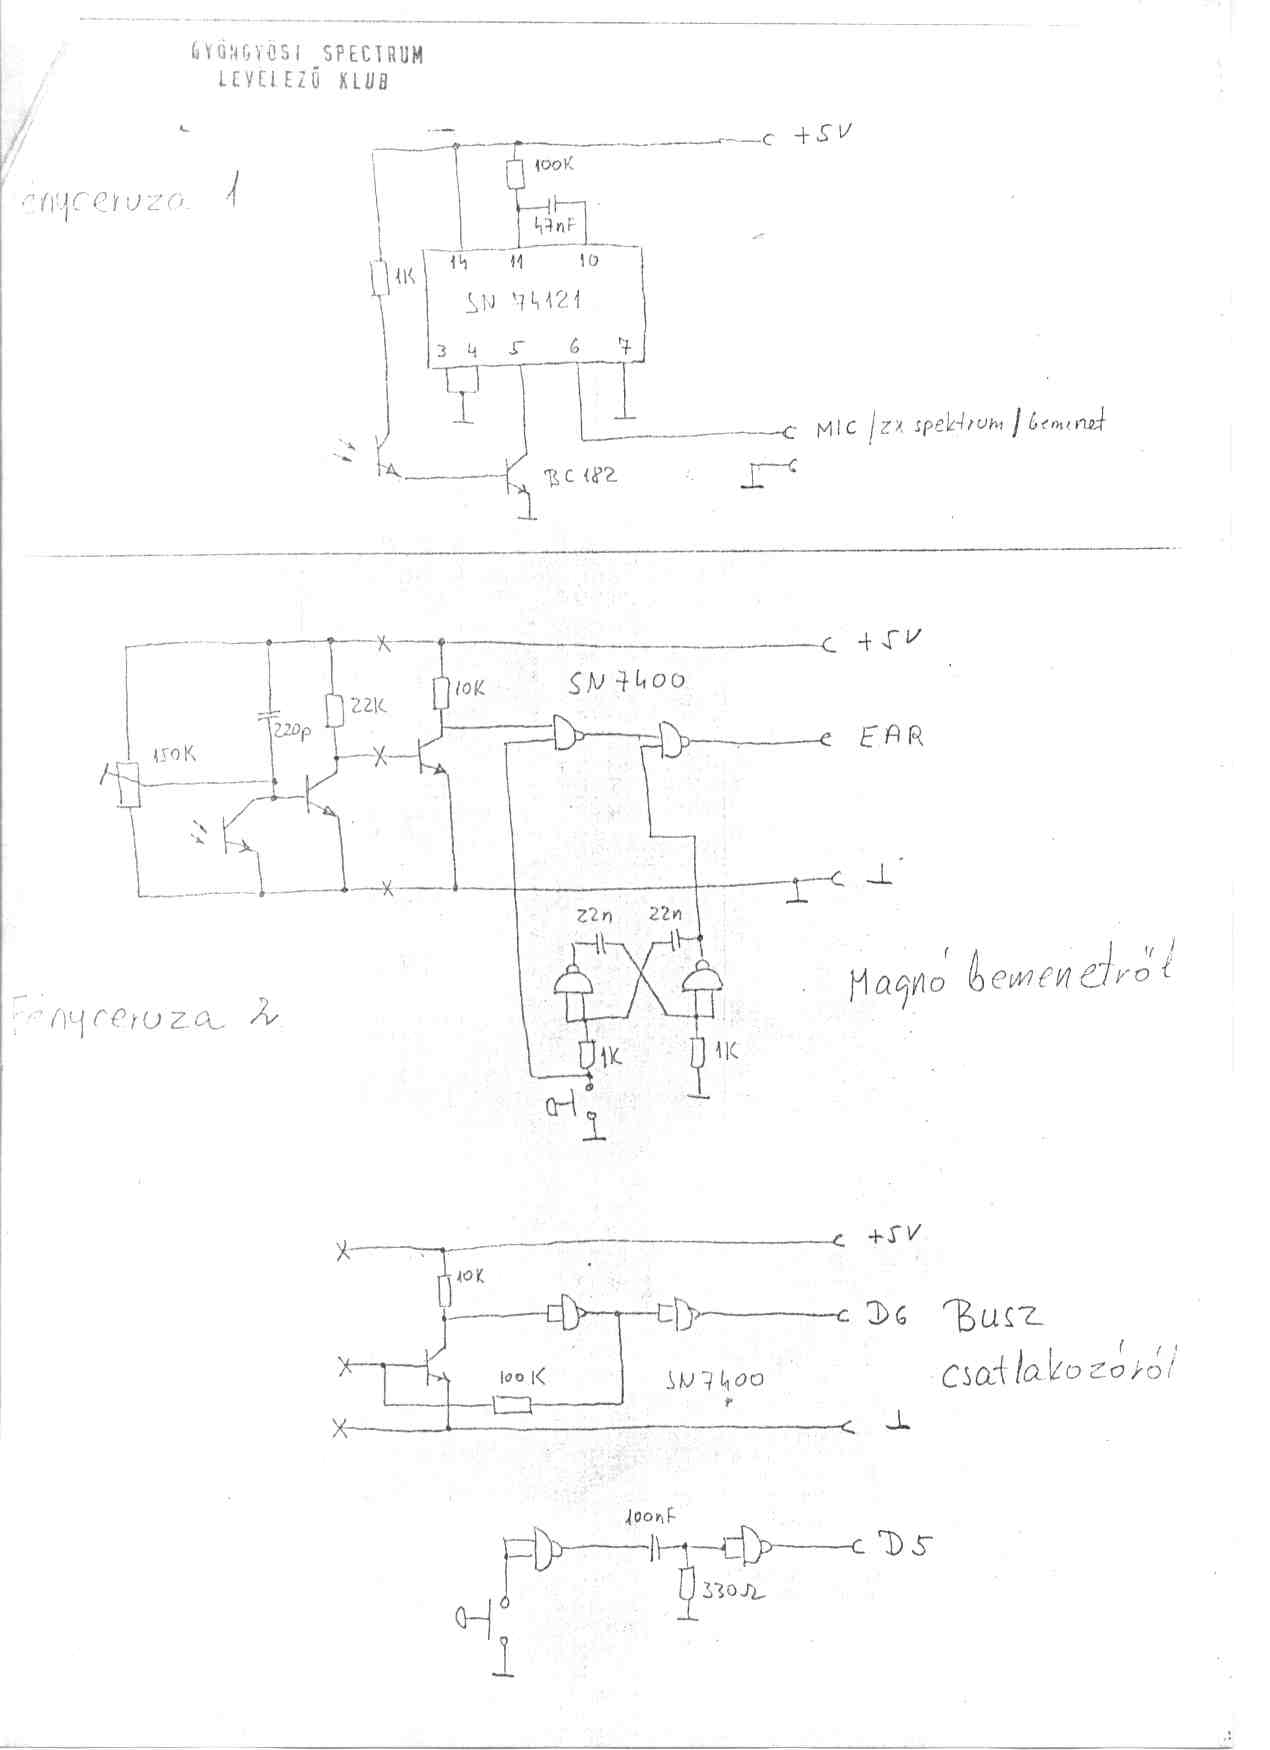 GYÖNGYÖSI SPECTRUM
LEVELEZŐ KLUB
+5V
100K
ényceruza 1
47nF
14 11 10
1K
SN 74121
3 4 5 6 7
MIC /zx spektrum/ bemenet
BC 182
+5V
SN7400
10K
22K
220p
EAR
150K
⊥
22n 22n
Magnó bemenetről
Fényceruza 2
1K 1K
+5V
10K
D6 Busz
csatlakozóról
100K SN7400
⊥
100nF
D5
330Ω